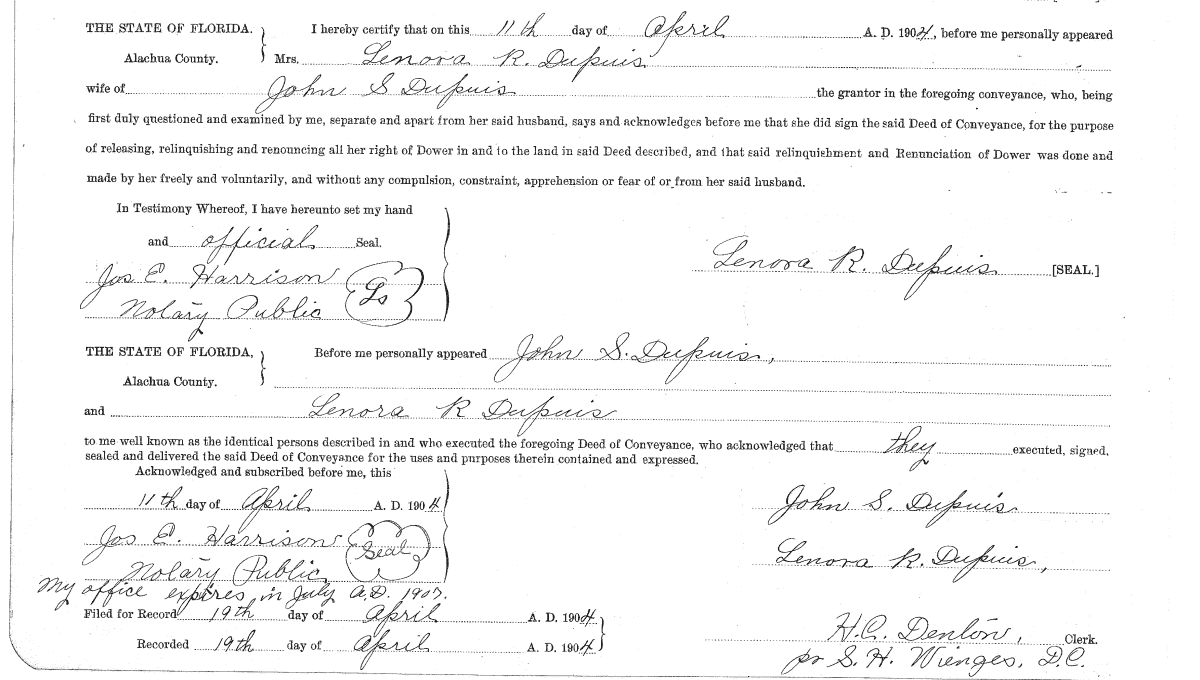 THE STATE OF FLORIDA. } I hereby certify that on this 11th day of April A. D. 1904, before me personally appeared
Alachua County. Mrs. Lenora R. Dupuis
wife of John S Dupuis the grantor in the foregoing conveyance, who, being
first duly questioned and examined by me, separate and apart from her said husband, says and acknowledges before me that she did sign the said Deed of Conveyance, for the purpose
of releasing, relinquishing and renouncing all her right of Dower in and to the land in said Deed described, and that said relinquishment and Renunciation of Dower was done and
made by her freely and voluntarily, and without any compulsion, constraint, apprehension or fear of or from her said husband.
In Testimony Whereof, I have hereunto set my hand
and official Seal.
Lenora R. Dupuis [SEAL.]
Jos E. Harrison Ls
Notary Public
THE STATE OF FLORIDA, } Before me personally appeared John S. Dupuis,
Alachua County.
and Lenora R Dupuis
to me well known as the identical persons described in and who executed the foregoing Deed of Conveyance, who acknowledged that they executed, signed,
sealed and delivered the said Deed of Conveyance for the uses and purposes therein contained and expressed.
Acknowledged and subscribed before me, this
11th day of April A. D. 1904
John S. Dupuis
Jos E. Harrison Seal
Lenora R. Dupuis,
Notary Public,
My office expires in July A.D. 1907.
Filed for Record 19th day of April A. D. 1904
H.C. Denton, Clerk.
Recorded 19th day of April A. D. 1904
pr S. H. Wienges, D.C.